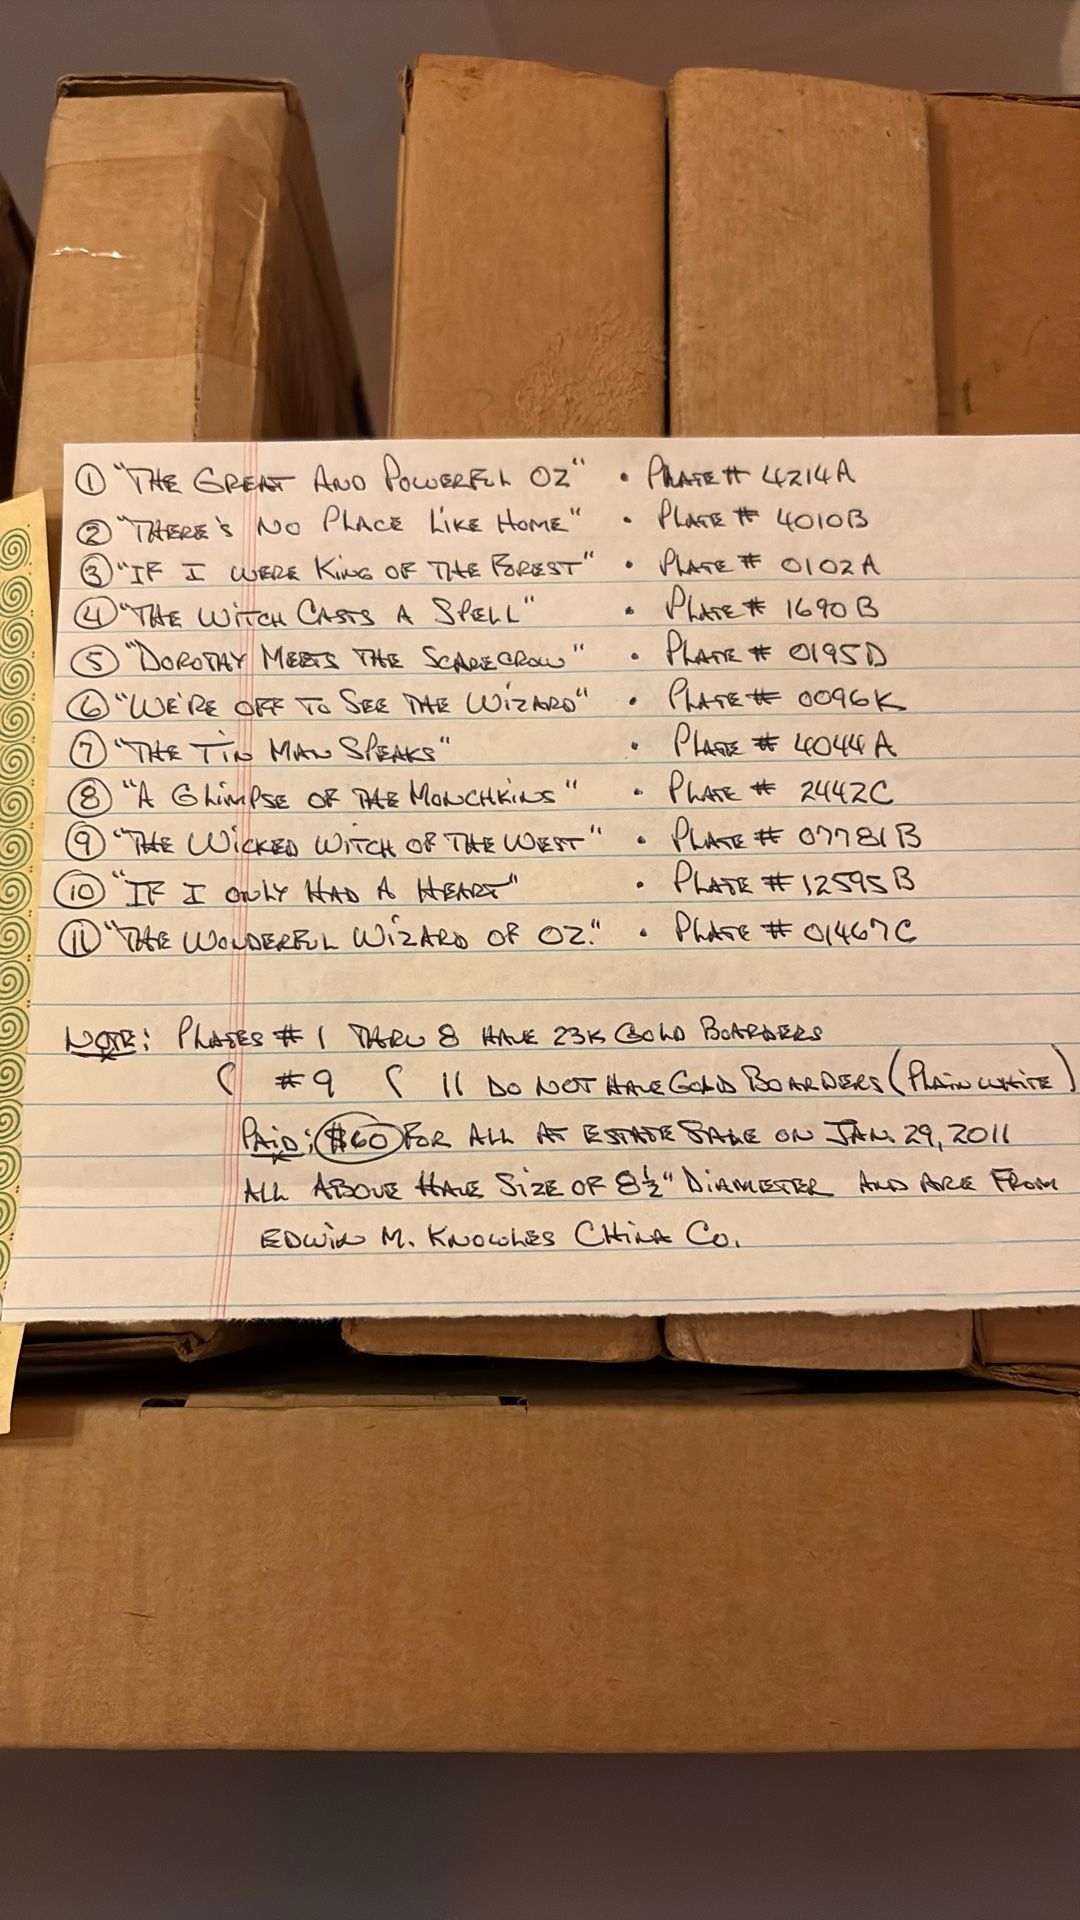 ① "THE GREAT AND POWERFUL OZ" • PLATE # 4214A
② "THERE'S NO PLACE LIKE HOME" • PLATE # 4010B
③ "IF I WERE KING OF THE FOREST" • PLATE # 0102A
④ "THE WITCH CASTS A SPELL" • PLATE # 1690B
⑤ "DOROTHY MEETS THE SCARECROW" • PLATE # 0195D
⑥ "WE'RE OFF TO SEE THE WIZARD" • PLATE # 0096K
⑦ "THE TIN MAN SPEAKS" • PLATE # 4044A
⑧ "A GLIMPSE OF THE MUNCHKINS" • PLATE # 2442C
⑨ "THE WICKED WITCH OF THE WEST" • PLATE # 07781B
⑩ "IF I ONLY HAD A HEART" • PLATE # 12595B
⑪ "THE WONDERFUL WIZARD OF OZ." • PLATE # 01467C
NOTE: PLATES # 1 THRU 8 HAVE 23K GOLD BOARDERS
( # 9 ( 11 DO NOT HAVE GOLD BOARDERS (PLAIN WHITE)
PAID: $60 FOR ALL AT ESTATE SALE ON JAN. 29, 2011
ALL ABOVE HAVE SIZE OF 8½" DIAMETER AND ARE FROM
EDWIN M. KNOWLES CHINA CO.